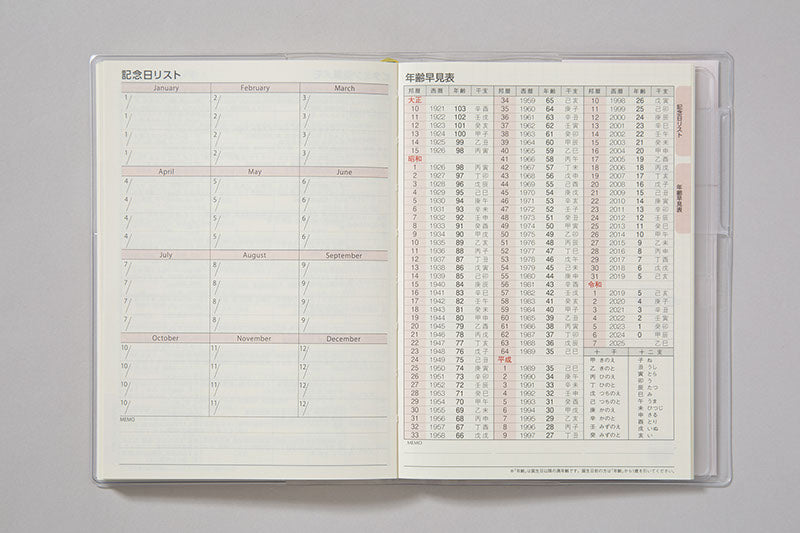 記念日リスト
January February March
1/ 2/ 3/
1/ 2/ 3/
1/ 2/ 3/
1/ 2/ 3/
April May June
4/ 5/ 6/
4/ 5/ 6/
4/ 5/ 6/
4/ 5/ 6/
July August September
7/ 8/ 9/
7/ 8/ 9/
7/ 8/ 9/
7/ 8/ 9/
October November December
10/ 11/ 12/
10/ 11/ 12/
10/ 11/ 12/
10/ 11/ 12/
MEMO
年齢早見表
邦暦 西暦 年齢 干支
大正
10 1921 103 辛酉
11 1922 102 壬戌
12 1923 101 癸亥
13 1924 100 甲子
14 1925 99 乙丑
15 1926 98 丙寅
昭和
1 1926 98 丙寅
2 1927 97 丁卯
3 1928 96 戊辰
4 1929 95 己巳
5 1930 94 庚午
6 1931 93 辛未
7 1932 92 壬申
8 1933 91 癸酉
9 1934 90 甲戌
10 1935 89 乙亥
11 1936 88 丙子
12 1937 87 丁丑
13 1938 86 戊寅
14 1939 85 己卯
15 1940 84 庚辰
16 1941 83 辛巳
17 1942 82 壬午
18 1943 81 癸未
19 1944 80 甲申
20 1945 79 乙酉
21 1946 78 丙戌
22 1947 77 丁亥
23 1948 76 戊子
24 1949 75 己丑
25 1950 74 庚寅
26 1951 73 辛卯
27 1952 72 壬辰
28 1953 71 癸巳
29 1954 70 甲午
30 1955 69 乙未
31 1956 68 丙申
32 1957 67 丁酉
33 1958 66 戊戌
邦暦 西暦 年齢 干支
34 1959 65 己亥
35 1960 64 庚子
36 1961 63 辛丑
37 1962 62 壬寅
38 1963 61 癸卯
39 1964 60 甲辰
40 1965 59 乙巳
41 1966 58 丙午
42 1967 57 丁未
43 1968 56 戊申
44 1969 55 己酉
45 1970 54 庚戌
46 1971 53 辛亥
47 1972 52 壬子
48 1973 51 癸丑
49 1974 50 甲寅
50 1975 49 乙卯
51 1976 48 丙辰
52 1977 47 丁巳
53 1978 46 戊午
54 1979 45 己未
55 1980 44 庚申
56 1981 43 辛酉
57 1982 42 壬戌
58 1983 41 癸亥
59 1984 40 甲子
60 1985 39 乙丑
61 1986 38 丙寅
62 1987 37 丁卯
63 1988 36 戊辰
64 1989 35 己巳
平成
1 1989 35 己巳
2 1990 34 庚午
3 1991 33 辛未
4 1992 32 壬申
5 1993 31 癸酉
6 1994 30 甲戌
7 1995 29 乙亥
8 1996 28 丙子
9 1997 27 丁丑
邦暦 西暦 年齢 干支
10 1998 26 戊寅
11 1999 25 己卯
12 2000 24 庚辰
13 2001 23 辛巳
14 2002 22 壬午
15 2003 21 癸未
16 2004 20 甲申
17 2005 19 乙酉
18 2006 18 丙戌
19 2007 17 丁亥
20 2008 16 戊子
21 2009 15 己丑
22 2010 14 庚寅
23 2011 13 辛卯
24 2012 12 壬辰
25 2013 11 癸巳
26 2014 10 甲午
27 2015 9 乙未
28 2016 8 丙申
29 2017 7 丁酉
30 2018 6 戊戌
31 2019 5 己亥
令和
1 2019 5 己亥
2 2020 4 庚子
3 2021 3 辛丑
4 2022 2 壬寅
5 2023 1 癸卯
6 2024 0 甲辰
7 2025 乙巳
十干 十二支
甲 きのえ
乙 きのと
丙 ひのえ
丁 ひのと
戊 つちのえ
己 つちのと
庚 かのえ
辛 かのと
壬 みずのえ
癸 みずのと
子 ね
丑 うし
寅 とら
卯 う
辰 たつ
巳 み
午 うま
未 ひつじ
申 さる
酉 とり
戌 いぬ
亥 い
MEMO
※「年齢」は誕生日以降の満年齢です。誕生日前の方は「年齢」から1歳を引いてください。
記念日リスト
年齢早見表